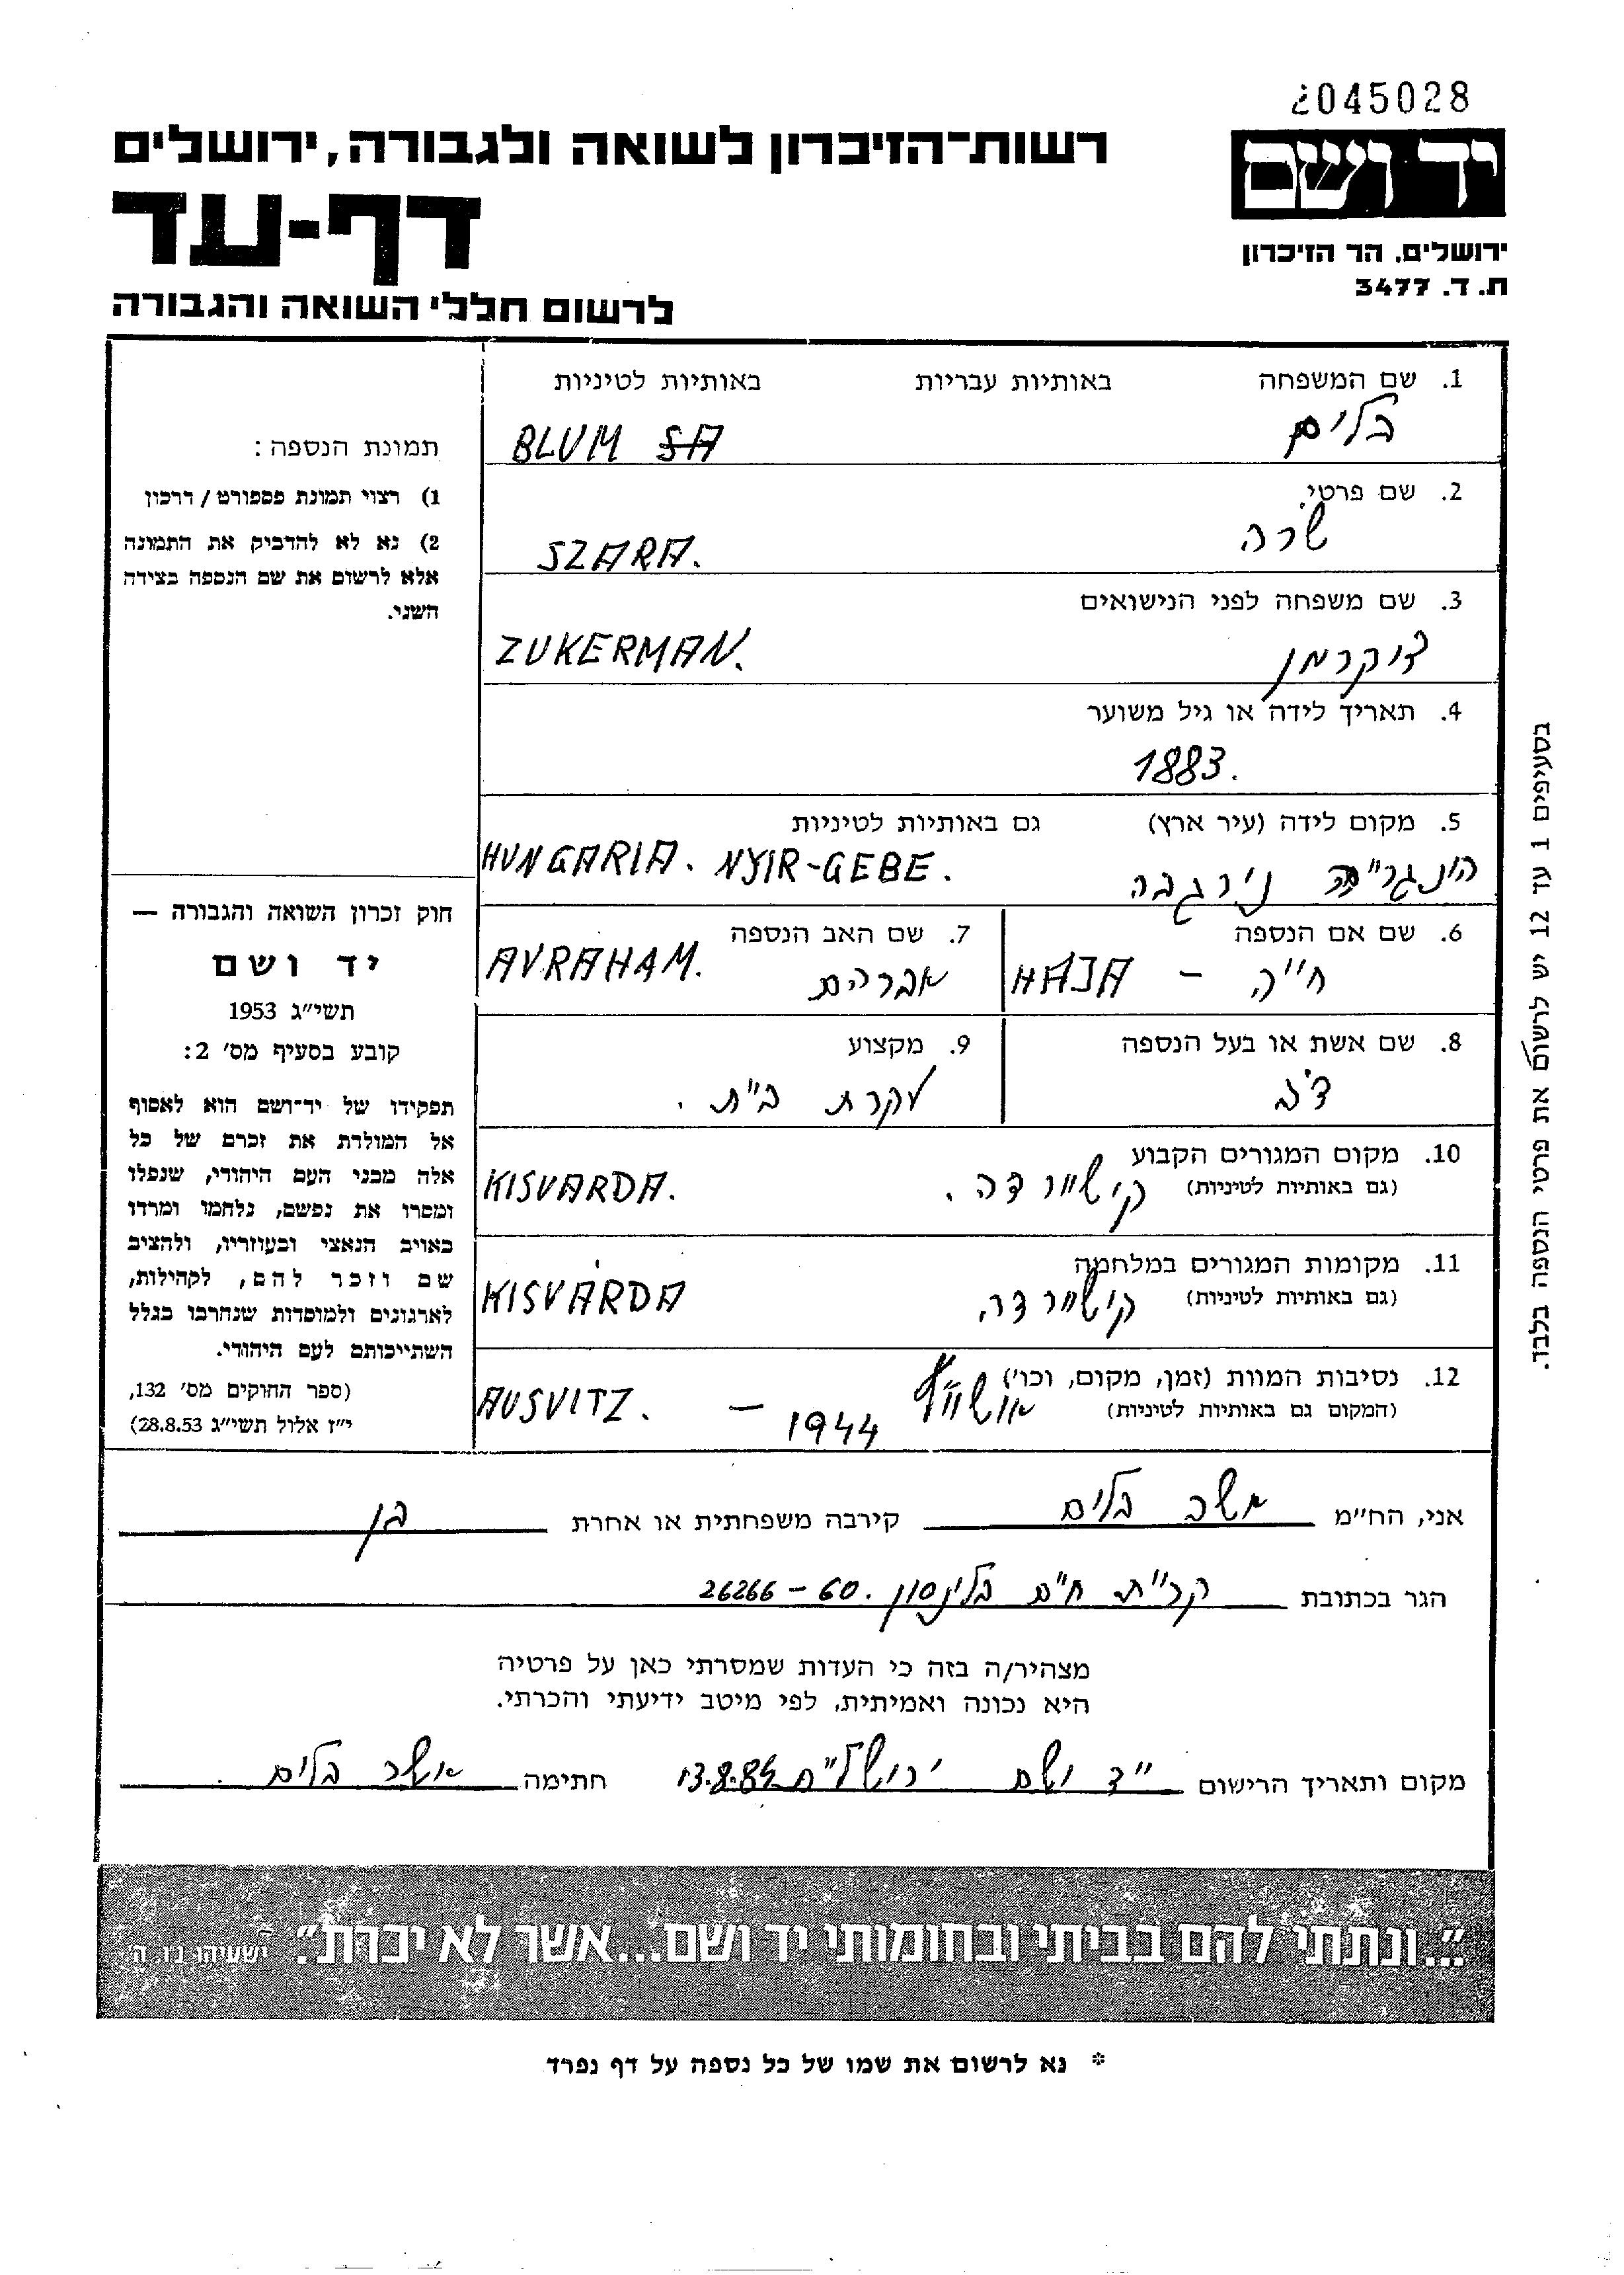 2045028
יד ושם
רשות־הזיכרון לשואה ולגבורה, ירושלים
דף-עד
לרשום חללי השואה והגבורה
ירושלים, הר הזיכרון
ת. ד. 3477
1. שם המשפחה באותיות עבריות באותיות לטיניות
בלום BLUM SA
2. שם פרטי
שרה SZARA.
3. שם משפחה לפני הנישואים
צוקרמן ZUKERMAN.
4. תאריך לידה או גיל משוער
1883.
5. מקום לידה (עיר ארץ) גם באותיות לטיניות
הונגריה נירגבה HUNGARIA. NYIR-GEBE.
6. שם אם הנספה
חייה - HAJA
7. שם האב הנספה
אברהם AVRAHAM.
8. שם אשת או בעל הנספה
9. מקצוע
עקרת בית.
10. מקום המגורים הקבוע
(גם באותיות לטיניות) קישוורדה. KISVARDA.
11. מקומות המגורים במלחמה
(גם באותיות לטיניות) קישוורדה KISVÁRDA
12. נסיבות המוות (זמן, מקום, וכו')
(המקום גם באותיות לטיניות) אושוויץ 1944 – AUSVITZ.
תמונת הנספה:
1) רצוי תמונת פספורט / דרכון
2) נא לא להדביק את התמונה
אלא לרשום את שם הנספה בצידה
השני.
חוק זכרון השואה והגבורה —
יד ושם
תשי"ג 1953
קובע בסעיף מס' 2:
תפקידו של יד-ושם הוא לאסוף
אל המולדת את זכרם של כל
אלה מבני העם היהודי, שנפלו
ומסרו את נפשם, נלחמו ומרדו
באויב הנאצי ובעוזריו, ולהציב
שם וזכר להם, לקהילות,
לארגונים ולמוסדות שנחרבו בגלל
השתייכותם לעם היהודי.
(ספר החוקים מס' 132,
י"ז אלול תשי"ג 28.8.53)
בסעיפים 1 עד 12 יש לרשום את פרטי הנספה בלבד.
אני, הח"מ אשר בלום קירבה משפחתית או אחרת בן
הגר בכתובת קרית חים בלינסון 60. – 26266
מצהיר/ה בזה כי העדות שמסרתי כאן על פרטיה
היא נכונה ואמיתית, לפי מיטב ידיעתי והכרתי.
מקום ותאריך הרישום יד ושם ירושלים חתימה אשר בלום.
"...ונתתי להם בביתי ובחומותי יד ושם...אשר לא יכרת". ישעיהו נו, ה
* נא לרשום את שמו של כל נספה על דף נפרד